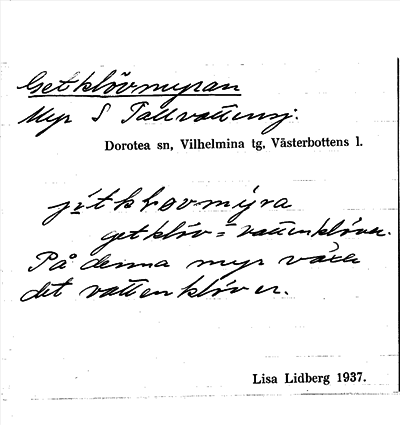 Getklövmyran
Myr S Tallvattensj.
Dorotea sn, Vilhelmina tg, Västerbottens l.
jítklovmýra
getklöv = vattenklöver.
På denna myr växer
det vattenklöver.
Lisa Lidberg 1937.